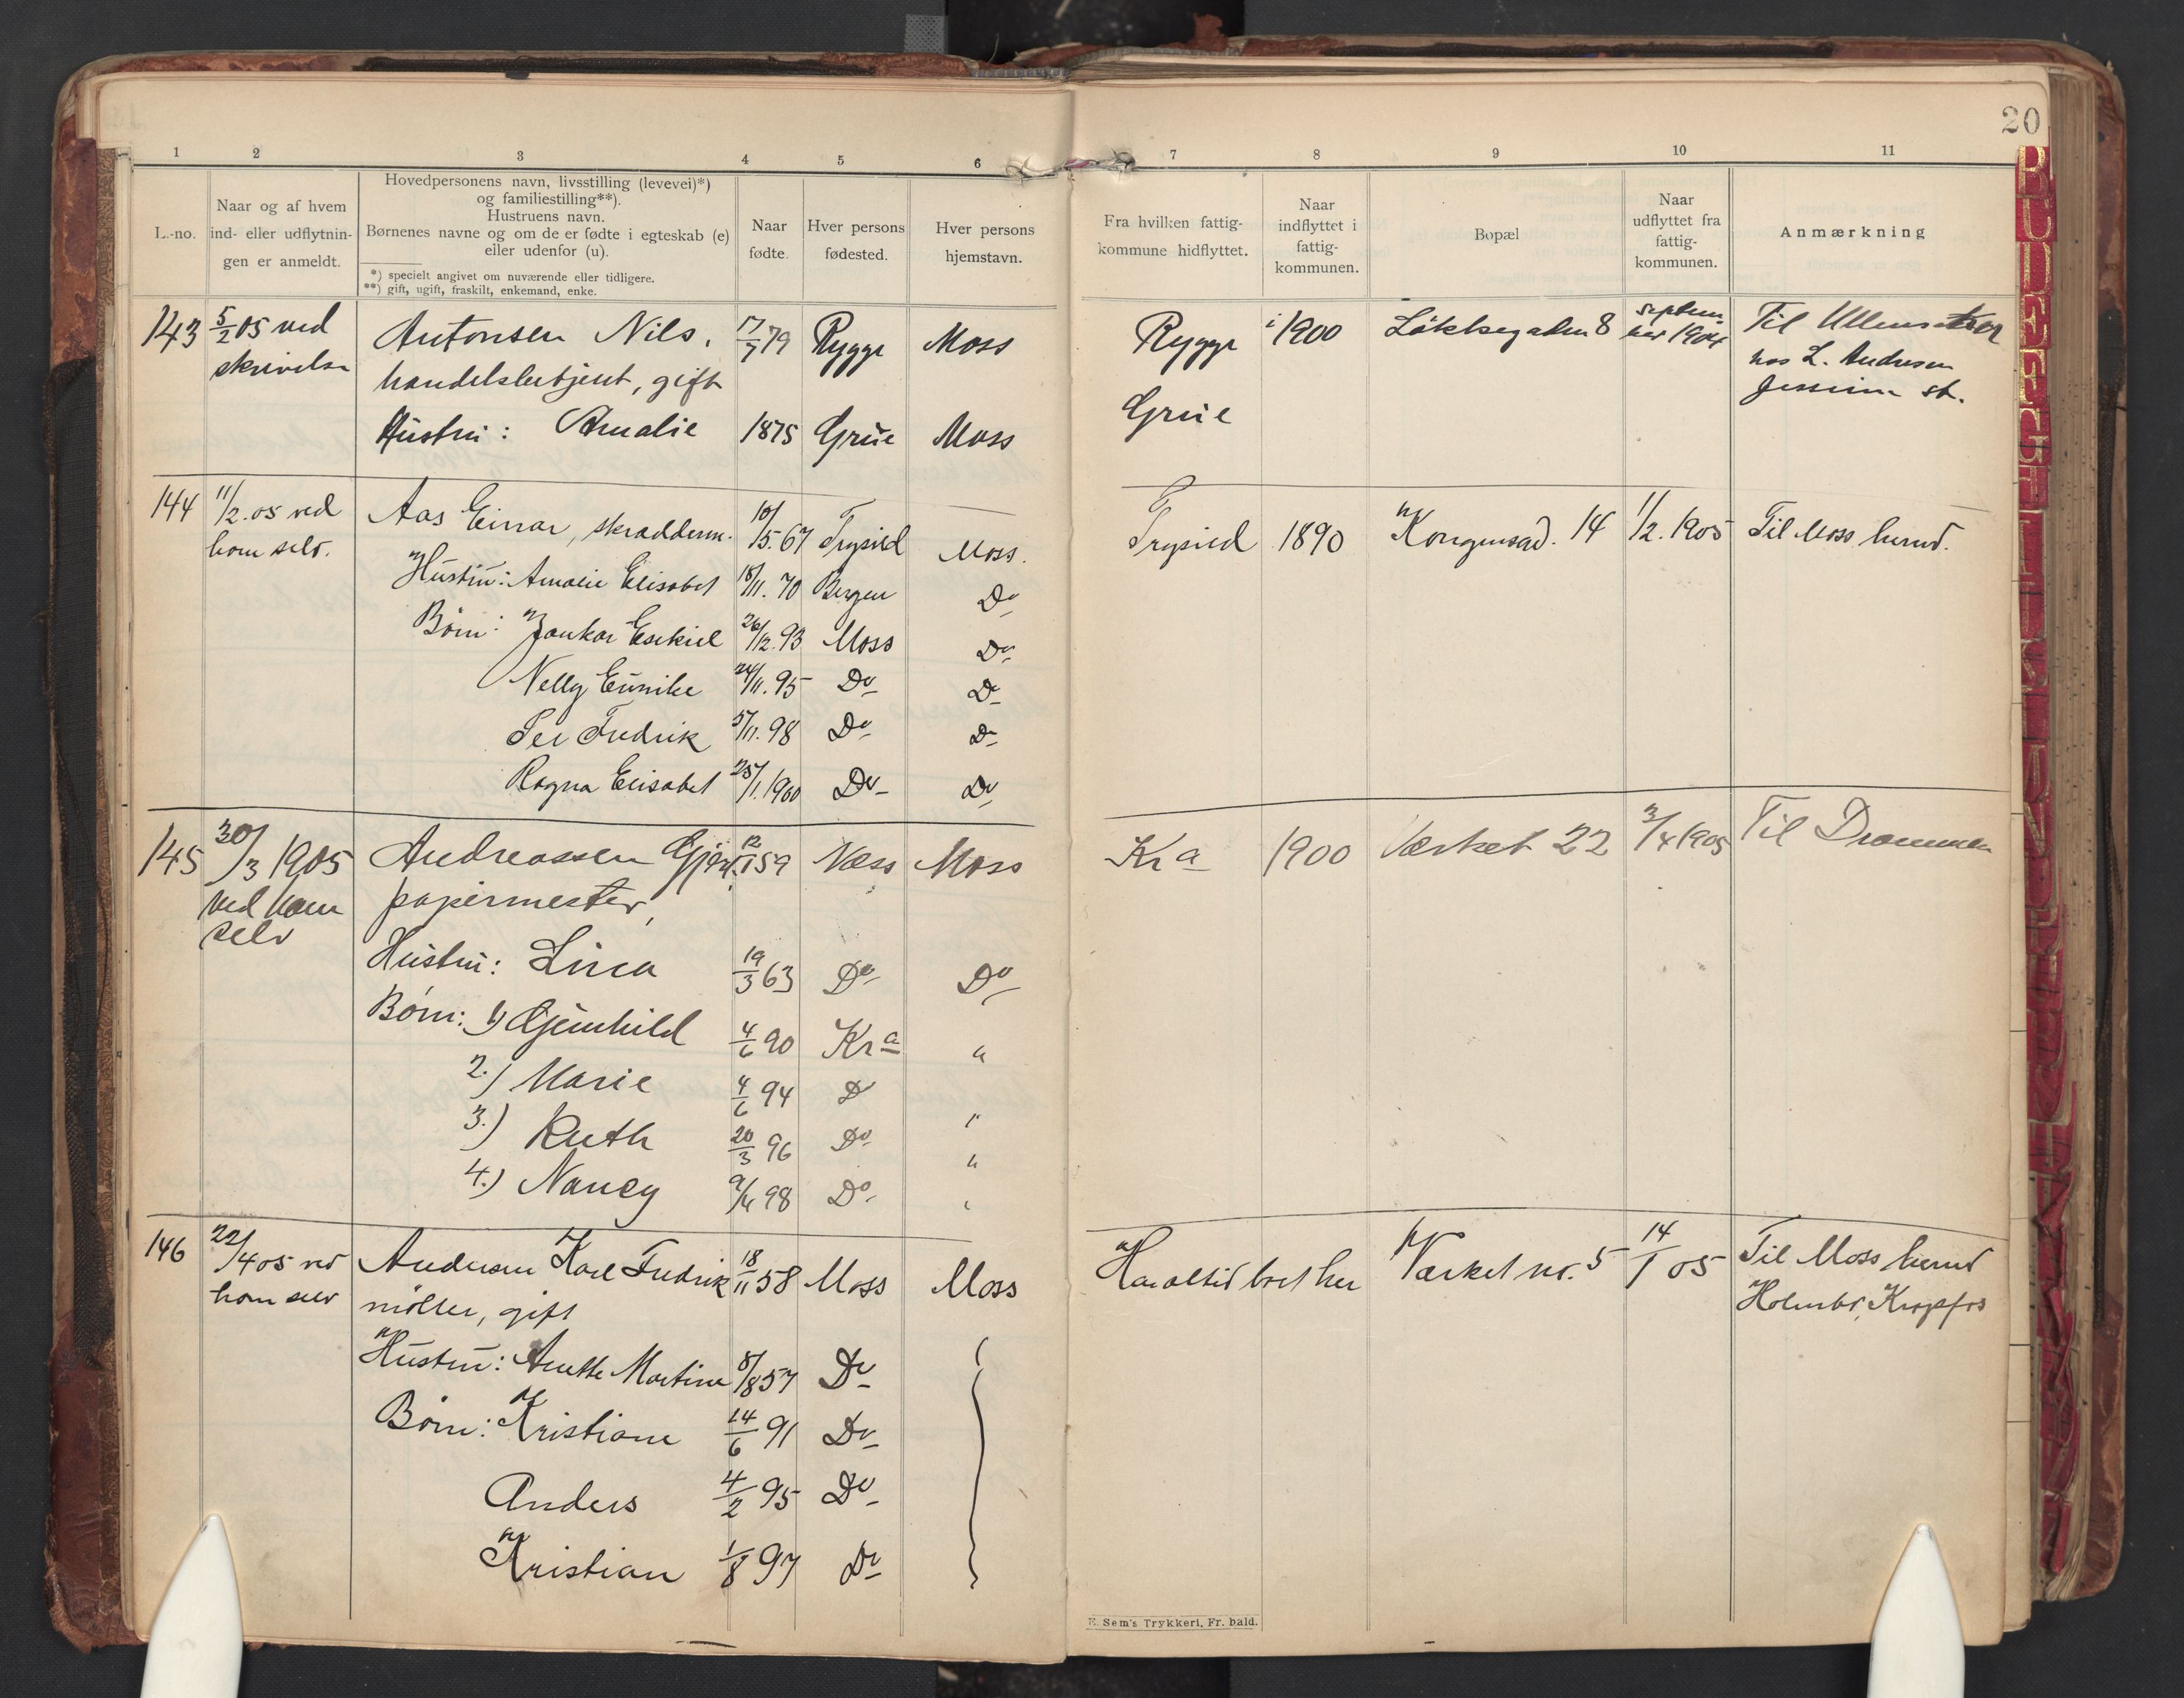 20
1 2 3 4 5 6 7 8 9 10 11
L.-no.
Naar og af hvem
ind- eller udflytnin-
gen er anmeldt.
Hovedpersonens navn, livsstilling (levevei)*)
og familiestilling**).
Hustruens navn.
Børnenes navne og om de er fødte i egteskab (e)
eller udenfor (u).
*) specielt angivet om nuværende eller tidligere.
**) gift, ugift, fraskilt, enkemand, enke.
Naar
fødte.
Hver persons
fødested.
Hver persons
hjemstavn.
Fra hvilken fattig-
kommune hidflyttet.
Naar
indflyttet i
fattig-
kommunen.
Bopæl
Naar
udflyttet fra
fattig-
kommunen.
Anmærkning
143 5/2 05 ved Antonsen Nils, 17/7 79 Rygge Moss Rygge i 1900 Løkkegaten 8 septem- Til Ullensaker
skrivelse handelsbetjent, gift ber 1904 hos L. Andresen
Jesseim st.
Hustru: Amalie 1875 Grue Moss Grue
144 11/2.05 ved Aas Einar, skrædderm. 10/5.67 Trysild Moss. Trysild 1890 Kongensgd. 14 1/2.1905 Til Moss herred.
ham selv. Hustru: Amalie Elisabet 18/11.70 Bergen Do
Børn: Esekiel 26/12.93 Moss Do
Nelly Eunike 24/11.95 Do Do
Per Fredrik 5/11.98 Do Do
Ragna Elisabet 25/1.1900 Do Do
145 30/3 1905 Andreassen 12/1 59 Næss Moss Kra 1900 Værket 22 3/4 1905 Til Drammen
ved ham papirmester,
selv
Hustru: Lina 19/3 63 Do Do
Børn: 1) 4/6 90 Kra "
2.) Marie 4/6 94 D "
3.) Ruth 20/3 96 Do "
4.) Nancy 9/4 98 Do "
146 22/4 05 ved Andersen Karl Fredrik 18/11 58 Moss Moss Har altid boet her Værket no. 5 14/1 05 Til Moss herred
ham selv møller, gift Kropfos
Hustru: Anette Martine 8/8 57 Do
Børn: Kristiane 14/6 91 Do
Anders 4/2 95 Do
Kristian 1/8 97 Do
E. Sem's Trykkeri, Fr. hald.